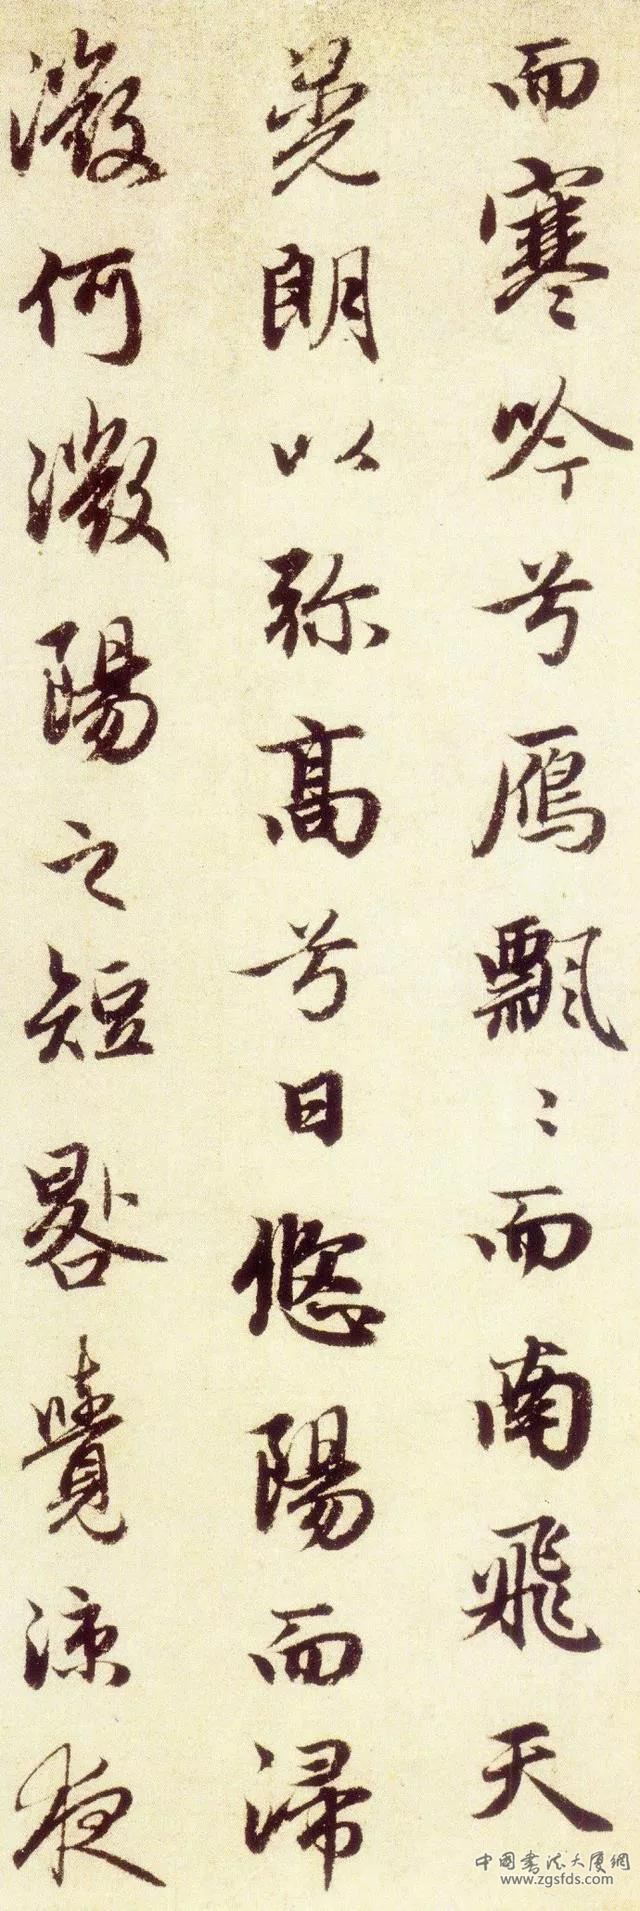 而寒吟兮雁飄〻而南飛天
晃朗以弥高兮日悠陽而浸
微何微陽之短晷覺涼夜
中国书法大厦网
www.zgsfds.com